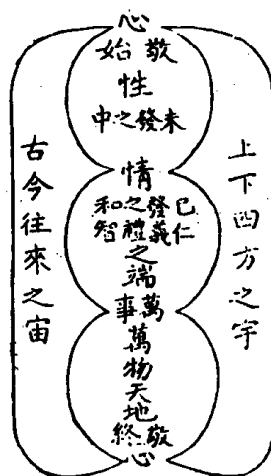 心
敬始
性
未發之中
情
已發之和
仁義禮智
之端
萬事
萬物
天地
敬終
心
上下四方之宇
古今往來之宙